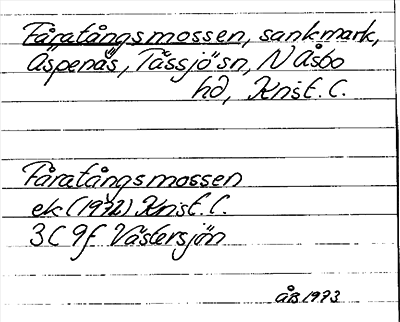 Fåratångsmossen, sankmark,
Äspenäs, Tåssjö sn, N Åsbo
hd, Krist. L.
Fåratångsmossen
ek (1972) Krist. L.
3C 9f Västersjön
ÅB 1973